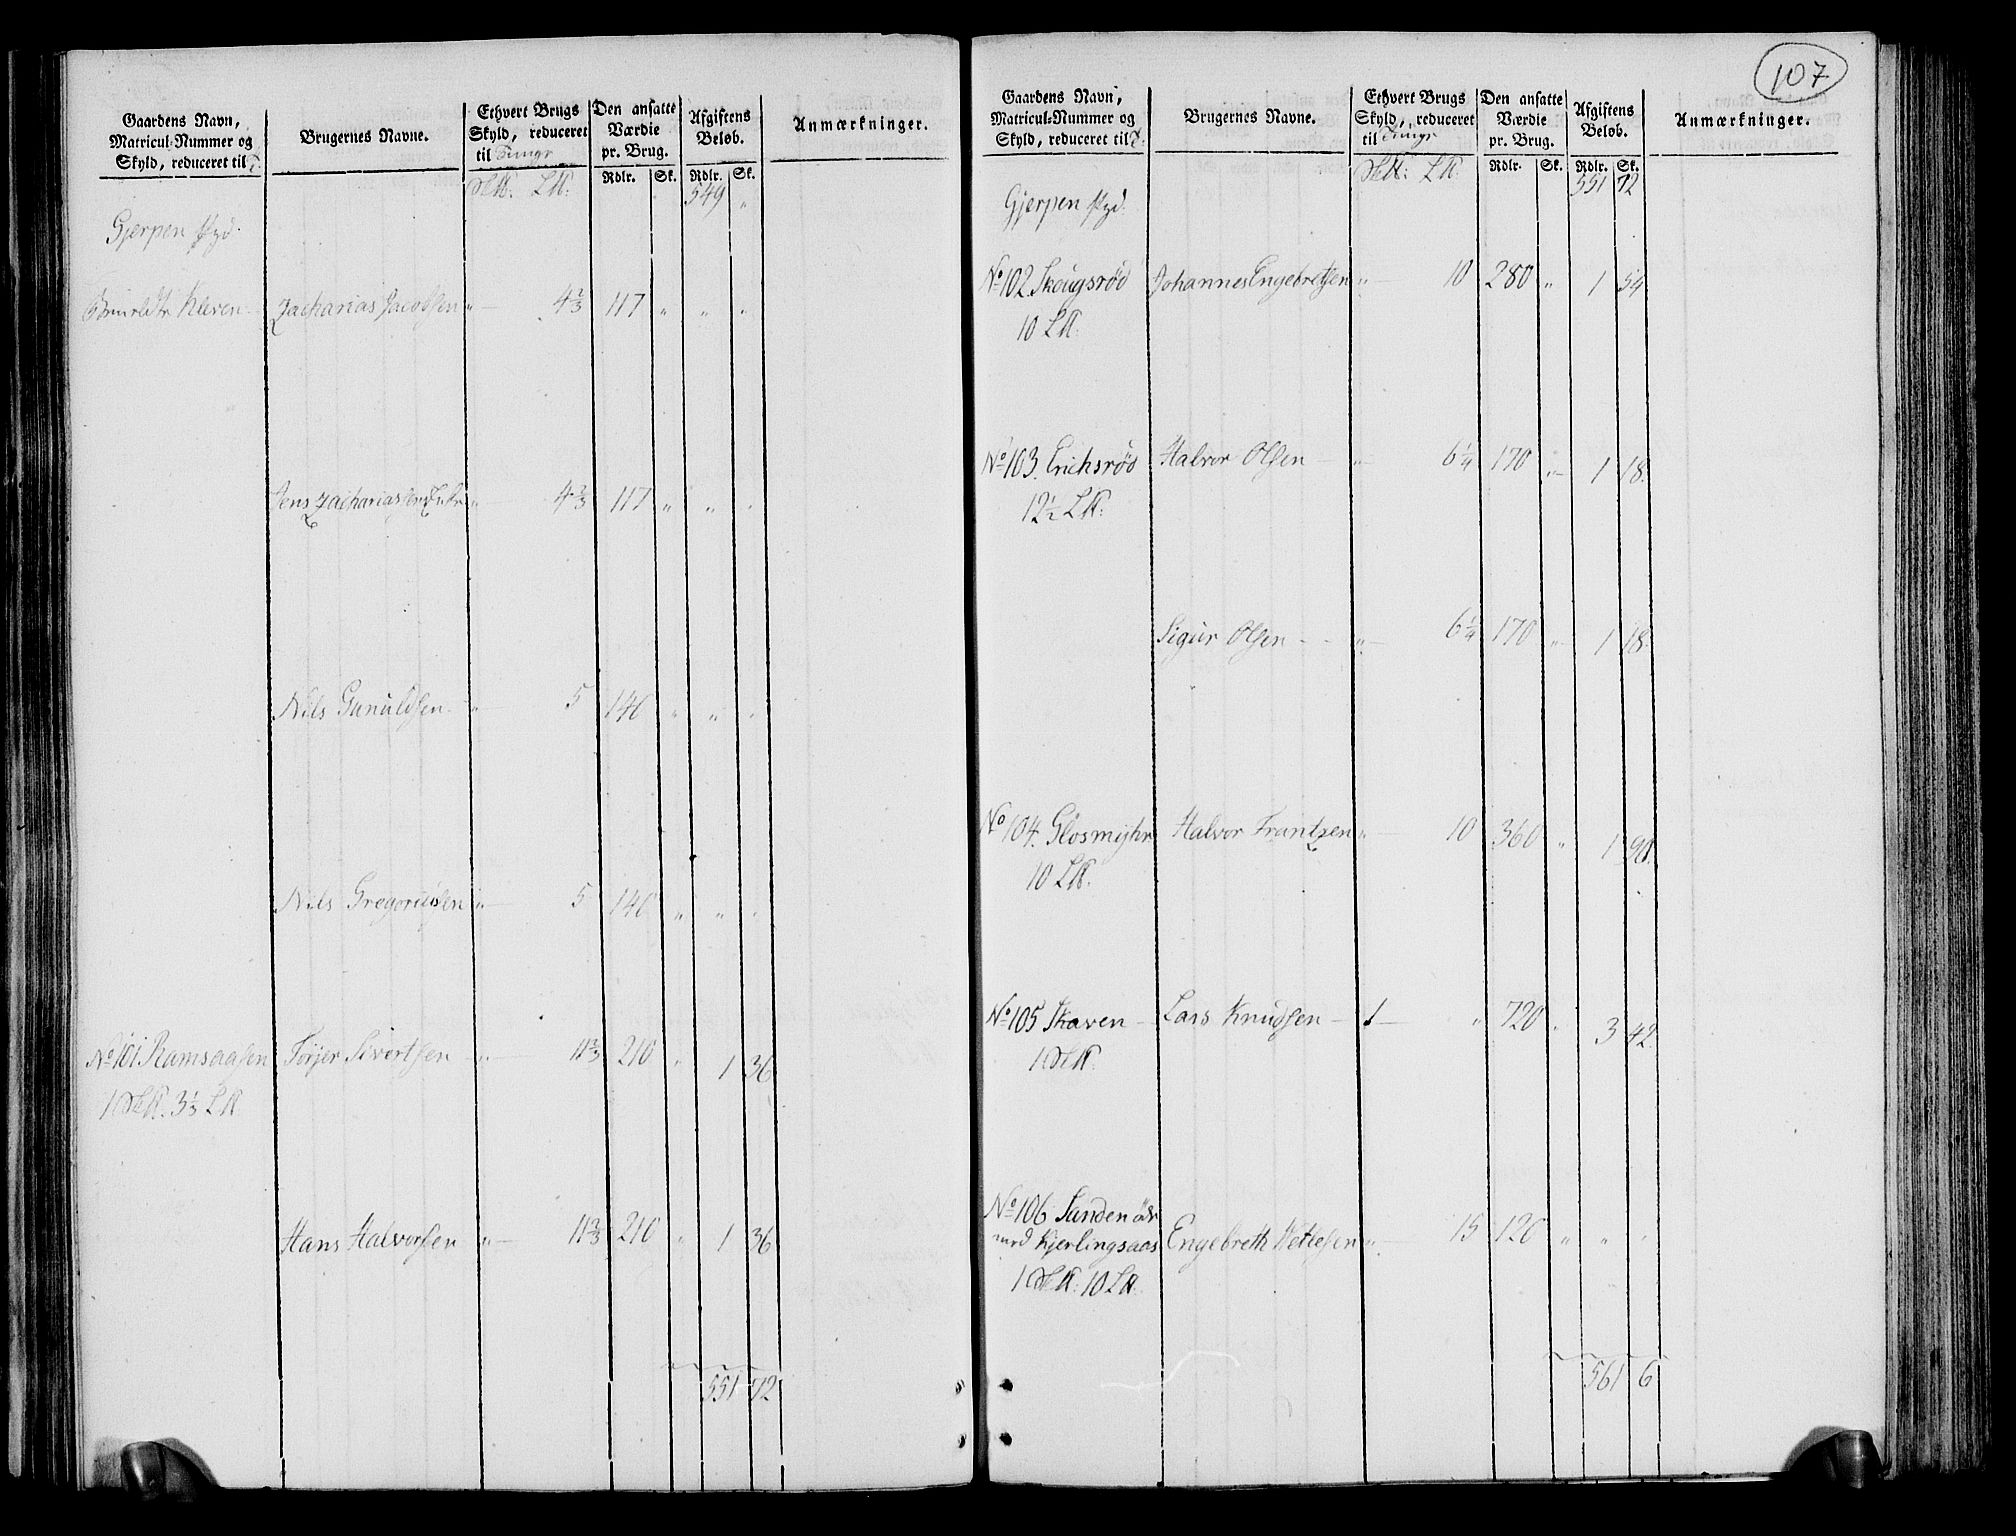 107
Gaardens Navn, Matricul-Nummer og Skyld, reduceret til
Brugernes Navne.
Ethvert Brugs Skyld, reduceret til Tunge
Den ansatte Værdie pr. Brug.
Afgiftens Beløb.
Anmærkninger.
Rdlr. Sk. Rdlr. Sk.
549 "
Gjerpen
Kleven Zacharias Jacobsen " 4 2/3 117 " " "
Jens Zachariasen " 4 2/3 117 " " "
Nils Gunuldsen " 5 140 " " "
Nils Gregoriusen " 5 140 " " "
No 101 Ramsaasen Torjer Sivertsen " 11 2/3 210 " 1 36
1 3 1/3
Hans Halvorsen " 11 2/3 210 " 1 36
551 72
Gaardens Navn, Matricul-Nummer og Skyld, reduceret til
Brugernes Navne.
Ethvert Brugs Skyld, reduceret til Tunge
Den ansatte Værdie pr. Brug.
Afgiftens Beløb.
Anmærkninger.
Rdlr. Sk. Rdlr. Sk.
551 72
Gjerpen
No 102 Skougsröd Johannes Engebretsen " 10 280 " 1 54
10
No 103. Erichsröd Halvor Olsen " 6 1/4 170 " 1 18
12 1/2
Sigur Olsen " 6 1/4 170 " 1 18
No 104. Glosmyhr Halvor Frantzen " 10 360 " 1 90
10
No 105 Skaven Lars Knudsen 1 " 720 " 3 42
1
No 106 Sanden öde
med Kjerlingsaas Engebreth Wetlesen " 15 120 " " "
1 10
561 6